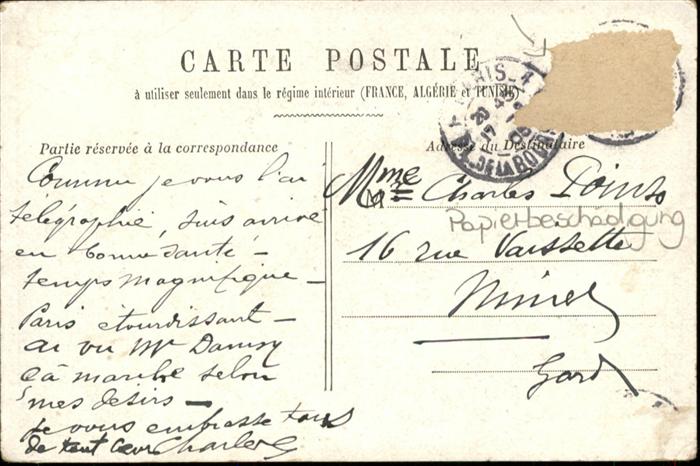 CARTE POSTALE
à utiliser seulement dans le régime intérieur (FRANCE, ALGÉRIE et TUNISIE)
Partie réservée à la correspondance
Comme je vous l'ai
télégraphié, suis arrivé
en bonne santé -
temps magnifique -
Paris étourdissant -
ai vu Mr
çà marche selon
mes désirs -
je vous embrasse tous
de tout cœur Charles
Adresse du Destinataire
Mme Charles
Papierbeschädigung
16 rue Vaissette
Nimes
Gard
PARIS
DE LA BOURSE